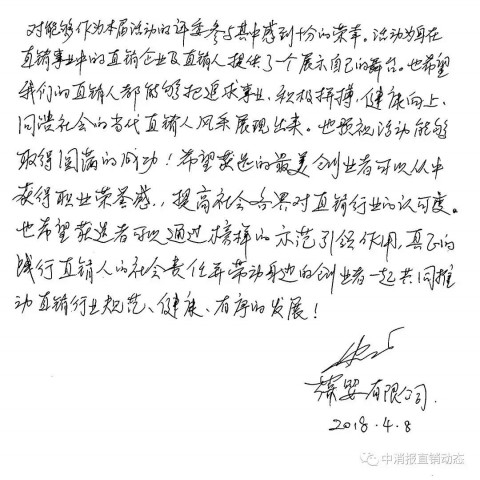 对能够作为本届活动的评委参与其中感到十分的荣幸。活动为身在
直销事业中的直销企业及直销人提供了一个展示自己的舞台。也希望
我们的直销人都能够把追求事业、积极拼搏、健康向上、
回馈社会的当代直销人风采展现出来。也预祝活动能够
取得圆满的成功！希望获选的最美创业者可以从中
获得职业荣誉感，提高社会各界对直销行业的认可度。
也希望获选者可以通过榜样的示范引领作用，真正的
践行直销人的社会责任并带动身边的创业者一起共同推
动直销行业规范、健康、有序的发展！
有限公司
2018.4.8
中消报直销动态